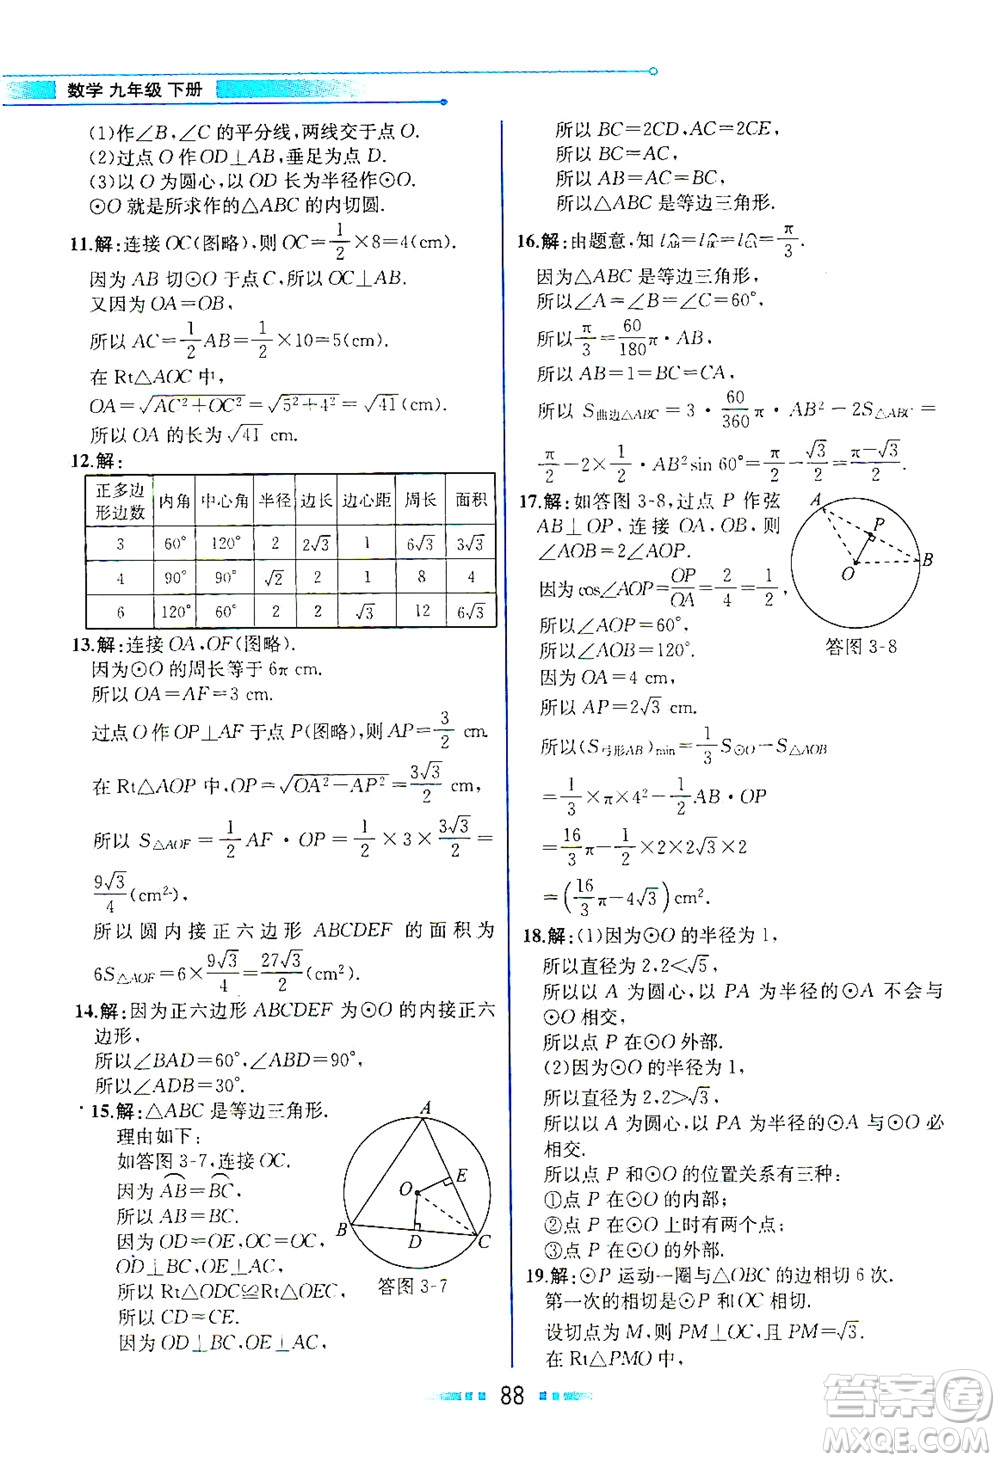 数学 九年级 下册
(1)作∠B,∠C 的平分线,两线交于点 O.
(2)过点 O 作 OD⊥AB,垂足为点 D.
(3)以 O 为圆心,以 OD 长为半径作⊙O.
⊙O 就是所求作的△ABC 的内切圆.
11.解:连接 OC(图略),则 OC=1/2×8=4(cm).
因为 AB 切⊙O 于点 C,所以 OC⊥AB.
又因为 OA=OB,
所以 AC=1/2 AB=1/2×10=5(cm).
在 Rt△AOC 中,
OA=√(AC²+OC²)=√(5²+4²)=√41(cm).
所以 OA 的长为 √41 cm.
12.解:
正多边形边数 内角 中心角 半径 边长 边心距 周长 面积
3 60° 120° 2 2√3 1 6√3 3√3
4 90° 90° √2 2 1 8 4
6 120° 60° 2 2 √3 12 6√3
13.解:连接 OA,OF(图略).
因为⊙O 的周长等于 6π cm.
所以 OA=AF=3 cm.
过点 O 作 OP⊥AF 于点 P(图略),则 AP=3/2 cm.
在 Rt△AOP 中,OP=√(OA²-AP²)=3√3/2 cm,
所以 S△AOF=1/2 AF·OP=1/2×3×3√3/2=
9√3/4(cm²),
所以圆内接正六边形 ABCDEF 的面积为
6S△AOF=6×9√3/4=27√3/2(cm²).
14.解:因为正六边形 ABCDEF 为⊙O 的内接正六
边形,
所以∠BAD=60°,∠ABD=90°,
所以∠ADB=30°.
15.解:△ABC 是等边三角形.
理由如下:
如答图 3-7,连接 OC.
因为 AB⌒=BC⌒,
所以 AB=BC.
因为 OD=OE,OC=OC,
OD⊥BC,OE⊥AC,
所以 Rt△ODC≌Rt△OEC,
所以 CD=CE.
因为 OD⊥BC,OE⊥AC,
A
E
O
B
D
C
答图 3-7
所以 BC=2CD,AC=2CE,
所以 BC=AC,
所以 AB=AC=BC,
所以△ABC 是等边三角形.
16.解:由题意,知 l=l=l=π/3.
因为△ABC 是等边三角形,
所以∠A=∠B=∠C=60°,
所以 π/3=60/180 π·AB,
所以 AB=1=BC=CA,
所以 S曲边△ABC=3·60/360 π·AB²-2S△ABC=
π/2-2×1/2·AB²sin 60°=π/2-√3/2=(π-√3)/2.
17.解:如答图 3-8,过点 P 作弦
AB⊥OP,连接 OA,OB,则
∠AOB=2∠AOP.
因为 cos∠AOP=OP/OA=2/4=1/2,
所以∠AOP=60°,
所以∠AOB=120°.
因为 OA=4 cm,
所以 AP=2√3 cm.
A
P
B
O
答图 3-8
所以(S弓形AB)min=1/3 S⊙O-S△AOB
=1/3×π×4²-1/2 AB·OP
=16/3 π-1/2×2×2√3×2
=(16/3 π-4√3)cm².
18.解:(1)因为⊙O 的半径为 1,
所以直径为 2,2<√5,
所以以 A 为圆心,以 PA 为半径的⊙A 不会与
⊙O 相交,
所以点 P 在⊙O 外部.
(2)因为⊙O 的半径为 1,
所以直径为 2,2>√3,
所以以 A 为圆心,以 PA 为半径的⊙A 与⊙O 必
相交.
所以点 P 和⊙O 的位置关系有三种:
①点 P 在⊙O 的内部;
②点 P 在⊙O 上时有两个点;
③点 P 在⊙O 的外部.
19.解:⊙P 运动一圈与△OBC 的边相切 6 次.
第一次的相切是⊙P 和 OC 相切.
设切点为 M,则 PM⊥OC,且 PM=√3.
在 Rt△PMO 中,
88
答案圈
MXQE.COM